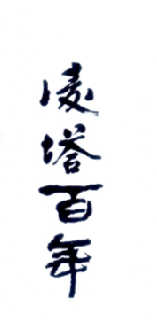 凌塔百年